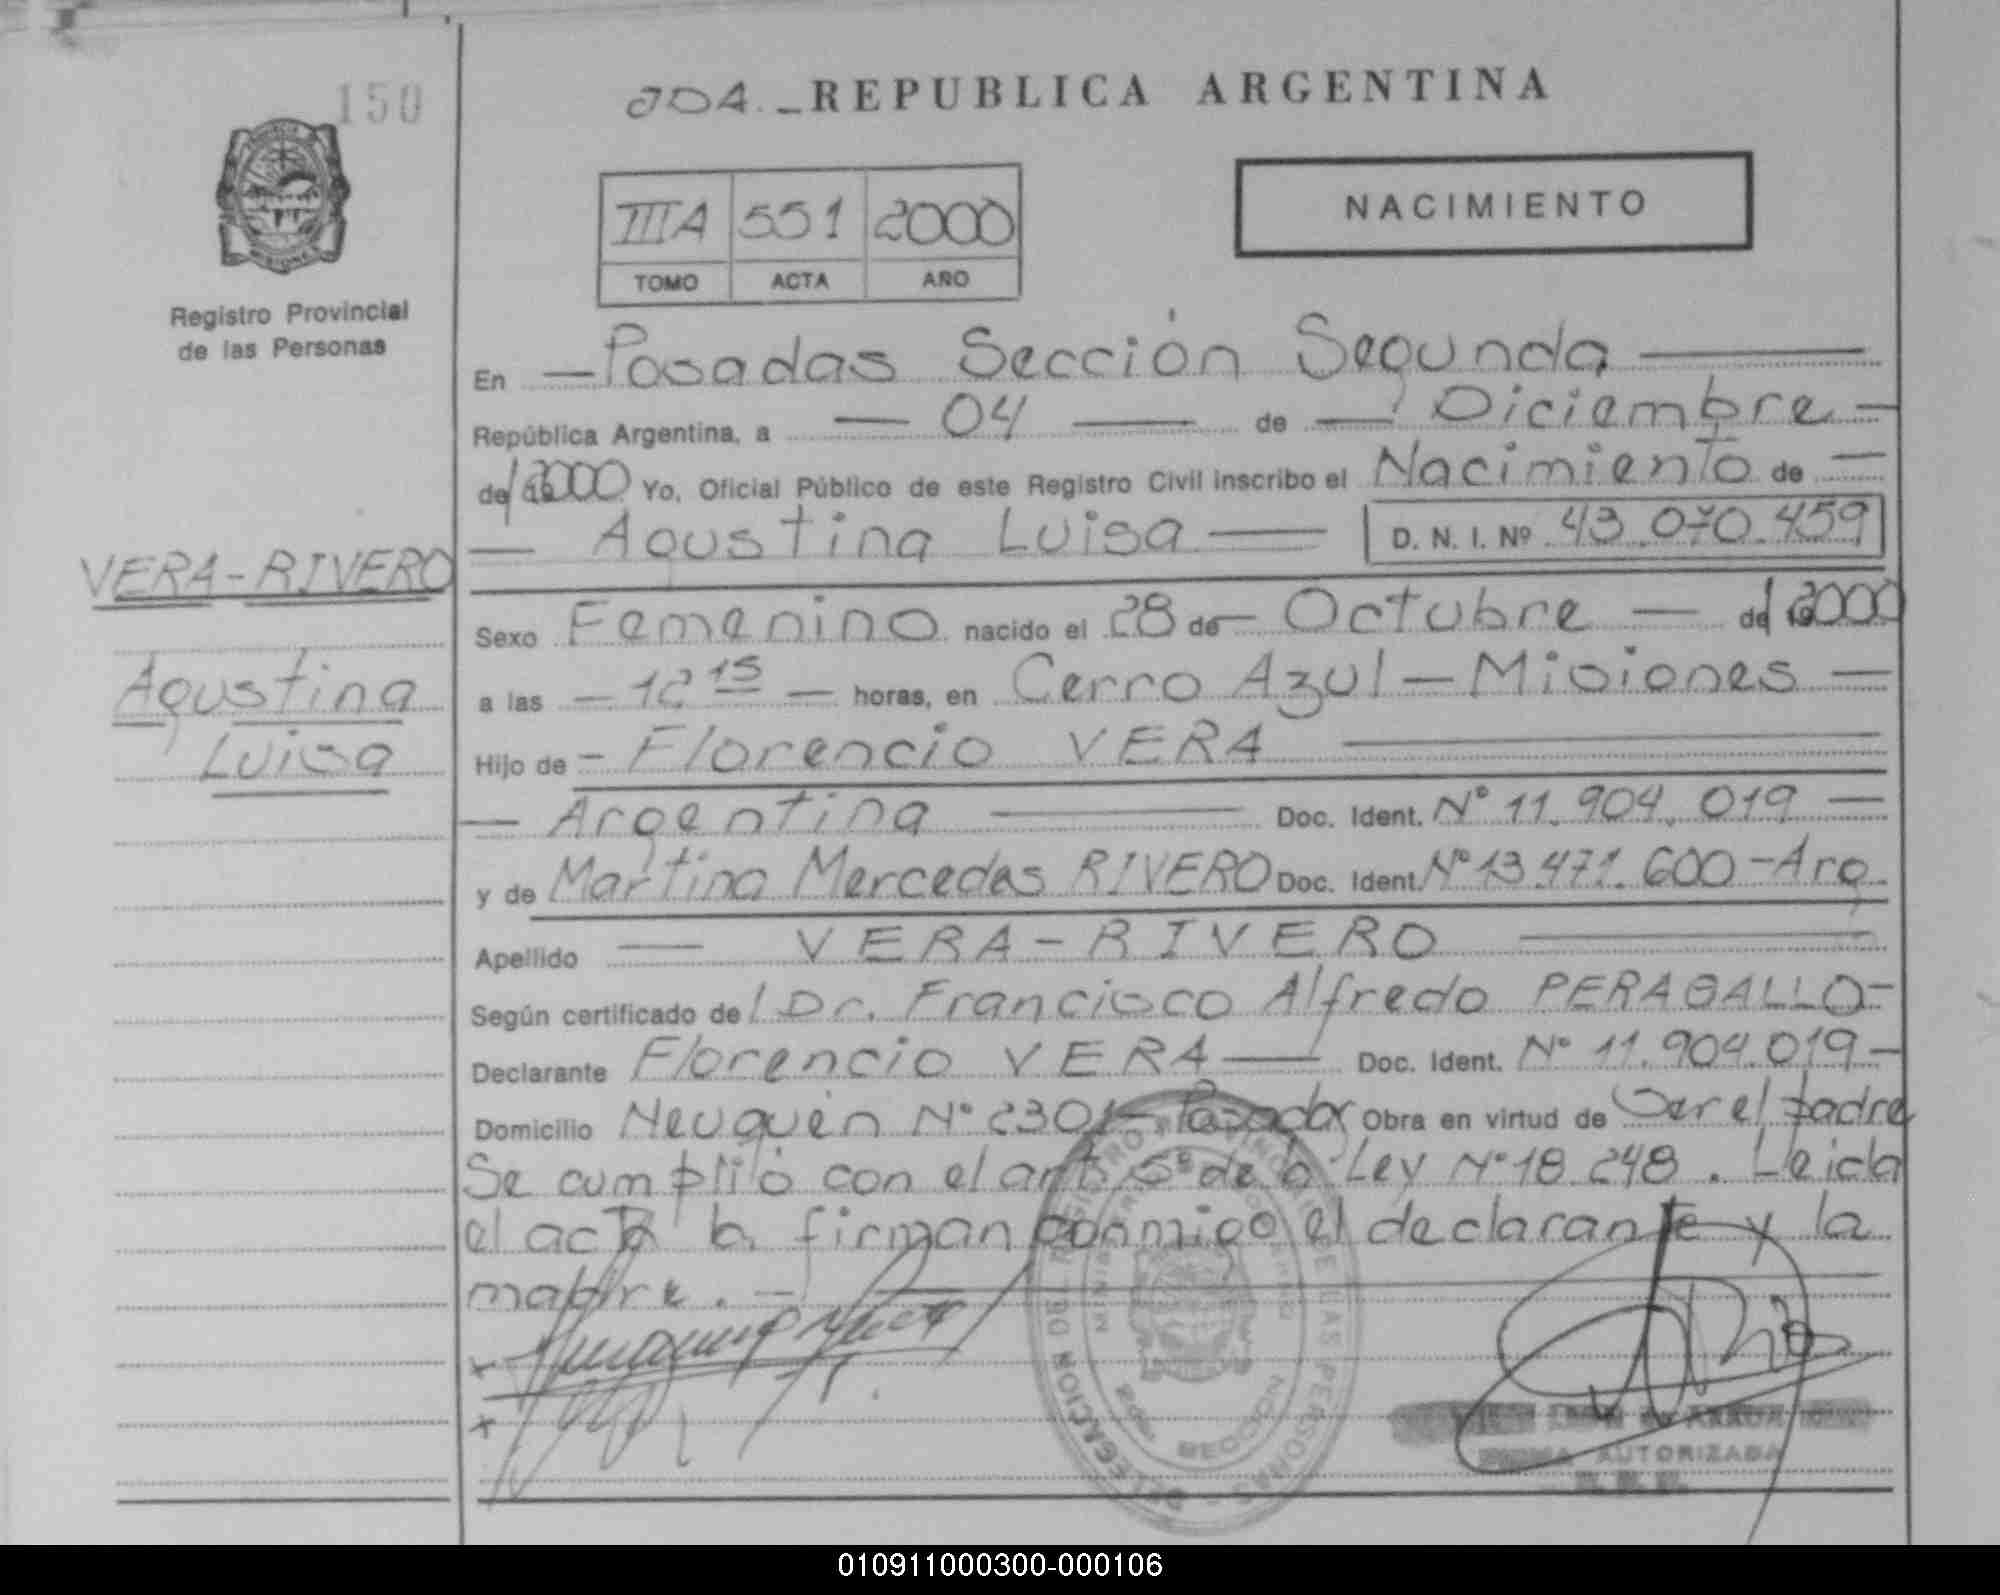 150
JDA._ REPUBLICA ARGENTINA
IIIA 551 2000
TOMO ACTA AÑO
NACIMIENTO
Registro Provincial
de las Personas
En — Posadas Sección Segunda —
República Argentina, a — 04 — de — Diciembre —
de 2000 Yo, Oficial Público de este Registro Civil inscribo el Nacimiento de —
— Agustina Luisa — D. N. I. Nº 43.070.459
VERA-RIVERO
Agustina
Luisa
Sexo Femenino nacido el 28 de — Octubre — de 2000
a las — 12 15 — horas, en Cerro Azul — Misiones —
Hijo de — Florencio VERA —
— Argentina — Doc. Ident. Nº 11.904.019 —
y de Martina Mercedes RIVERO Doc. Ident. Nº 13.471.600 - Arg.
Apellido — VERA-RIVERO —
Según certificado de Dr. Francisco Alfredo PERAGALLO -
Declarante Florencio VERA — Doc. Ident. Nº 11.904.019 -
Domicilio Neuquén Nº 2301 - Posadas Obra en virtud de Ser el padre
Se cumplió con el art. 6º de la Ley Nº 18.248. Leida
el acta la firman conmigo el declarante y la
madre. —
REGISTRO PROVINCIAL DE LAS PERSONAS
DELEGACION
FIRMA AUTORIZADA
010911000300-000106